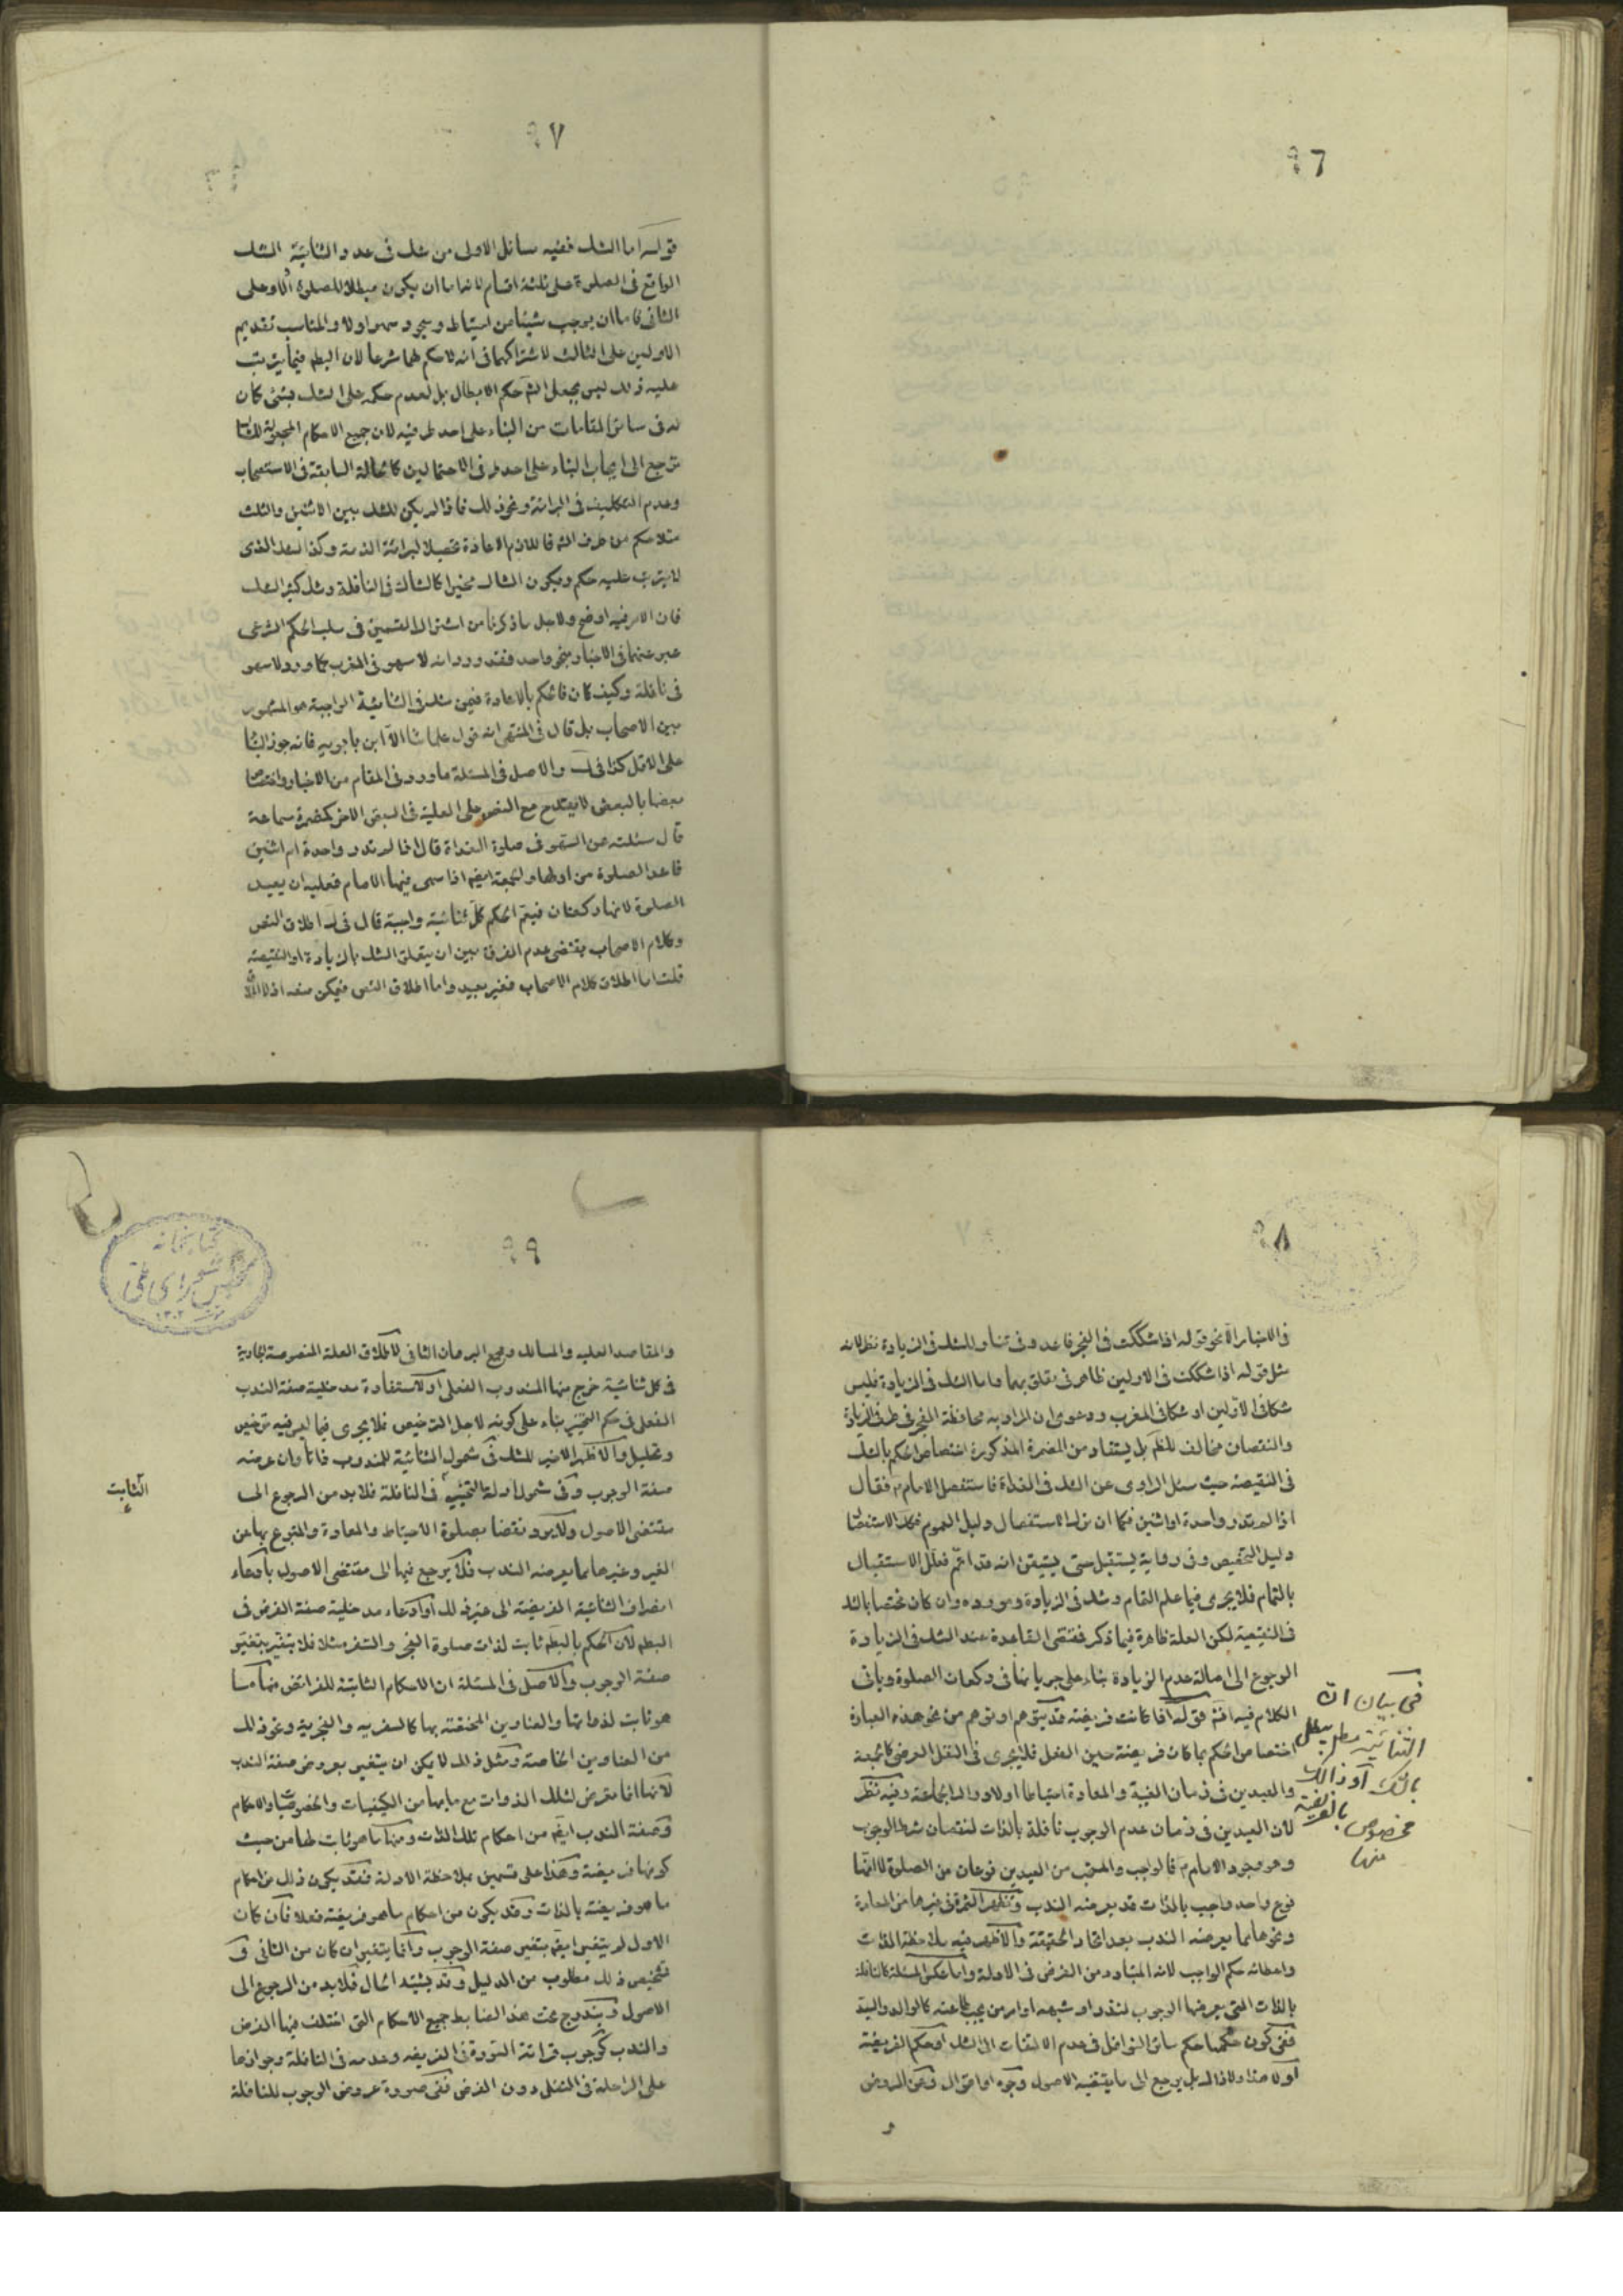 ٩٦
٩٧
قوله اما الشك ففيه مسائل الاولى من شك فى عدد الثنائية الشك
الواقع فى الصلوة على ثلثة اقسام لانه اما ان يكون مبطلا للصلوة او لا وعلى
الثانى فاما ان يوجب شيئا من احتياط وسجود سهو اولا والمناسب تقديم
الاولين على الثالث لاشتراكهما فى انه لا حكم لهما شرعا لان البطم فيما يترتب
عليه ذلك ليس بجعل الش حكم الابطال بل لعدم حكمه على الشك بشئ كان
له فى سائر المقامات من البناء على احد طرفيه لان جميع الاحكام المجعولة للشك
ترجع الى ايجاب البناء على احد طرفى الاحتمالين كالحالة السابقة فى الاستصحاب
وعدم التكليف فى البرائة ونحو ذلك فاذا لم يكن للشك بين الاثنين والثلث
مثلا حكم من طرف الش فاللازم الاعادة تحصيلا لبرائة الذمة وكذا الشك الذى
لا يترتب عليه حكم ويكون الشاك مخيرا كالشاك فى النافلة ومثل كثير الشك
فان الامر فيه اوضح ولاجل ما ذكرنا من اشتراك القسمين فى سلب الحكم الشرعى
عبر عنهما فى الاخبار بنحو واحد فقد ورد انه لا سهو فى المغرب كما ورد لا سهو
فى نافلة وكيف كان فالحكم بالاعادة فيمن شك فى الثنائية الواجبة هو المشهور
بين الاصحاب بل قال فى المنتهى انه قول علمائنا الا ابن بابويه فانه جوز البناء
على الاقل كذا فى ك والاصل فى المسئلة ما ورد فى المقام من الاخبار واختصاص
بعضها بالبعض لا يقدح مع النص على العلية فى البعض الاخر كمضمرة سماعة
قال سئلته عن السهو فى صلوة الغداة قال اذا لم تدر واحدة ام اثنتين
فاعد الصلوة من اولها والجمعة ايضا اذا سهى فيها الامام فعليه ان يعيد
الصلوة لانها ركعتان فيتم الحكم كل ثنائية واجبة قال فى ك اطلاق النص
وكلام الاصحاب يقتضى عدم الفرق بين ان يتعلق الشك بالزيادة او النقيصة
قلت اما اطلاق كلام الاصحاب فغير بعيد واما اطلاق النص فيمكن منعه اذ لا اطلاق
٩٨
فى الاخبار الا نحو قوله اذا شككت فى الفجر فاعد وفى تناوله للشك فى الزيادة نظر لانه
مثل قوله اذا شككت فى الاولين ظاهر فى تعلق بهما واما الشك فى الزيادة فليس
شكا فى الاولين او شكا فى المغرب ودعوى ان المراد به محافظة الفجر فى طرفى الزيادة
والنقصان مخالف للظم بل يستفاد من المضمرة المذكورة اختصاص الحكم بالشك
فى النقيصة حيث سئل الراوى عن الشك فى الغداة فاستفصل الامام ع فقال
اذا لم تدر واحدة او اثنتين فكما ان ترك الاستفصال دليل العموم فكذا الاستفصال
دليل التخصيص وفى رواية يستقبل حتى يستيقن انه قد اتم فعلل الاستقبال
بالتمام فلا يجرى فيما علم التمام وشك فى الزيادة ومورده وان كان مختصا بالشك
فى النقيصة لكن العلة ظاهرة فيما ذكر فمقتضى القاعدة عند الشك فى الزيادة
الرجوع الى اصالة عدم الزيادة بناء على جريانها فى ركعات الصلوة وياتى
الكلام فيه انش قوله اذا كانت فريضة قد يتوهم او توهم من نحو هذه العبارة
اختصاص الحكم بما كان فريضة حين الفعل فلا يجرى فى النفل العرضى كالجمعة
والعيدين فى زمان الغيبة والمعادة احتياطا او لادراك الجماعة وفيه نظر
لان العيدين فى زمان عدم الوجوب نافلة بالذات لنقصان شرط الوجوب
وهو وجود الامام ع فالواجب والمستحب من العيدين نوعان من الصلوة لا انها
نوع واحد واجب بالذات قد يعرضه الندب وتظهر الثمرة فى غيرها من المعادة
ونحوها مما يعرضه الندب بعد اتحاد الحقيقة والاظهر فيه ملاحظة الذات
واعطائه حكم الواجب لانه المتبادر من الفرض فى الادلة واما عكس المسئلة كالنافلة
بالذات التى يعرضها الوجوب لنذر او شبهه او امر من يجب طاعته كالوالد والسيد
ففى كون حكمها حكم سائر النوافل فى عدم الالتفات الى الشك او حكم الفريضة
او لا هذا ولا ذاك بل يرجع الى ما يقتضيه الاصول وجوه او اقوال وعن الروض
فى بيان ان
الثنائية مطلق يبطل
بالشك او ذلك
مخصوص بالفريضة
منها
٩٩
كتابخانه
مجلس شوراى ملى
١٣٠٢
والمقاصد العلية والمسالك ومجمع البرهان الثانى لاطلاق العلة المنصوصة الجارية
فى كل ثنائية خرج منها المندوب الفعلى او لاستفادة مدخلية صفة الندب
الفعلى فى حكم التخيير بناء على كونه لاجل الترخيص فلا يجرى فيما ليس فيه ترخيص
وتحليل والاظهر الاخير للشك فى شمول الثنائية للمندوب ذاتا وان عرضه
صفة الوجوب وفى شمول ادلة التخيير فى النافلة فلا بد من الرجوع الى
مقتضى الاصول ولا يرد نقضا بصلوة الاحتياط والمعادة والمتبرع بها عن
الغير وغيرها مما يعرضه الندب فلا يرجع فيها الى مقتضى الاصول بادعاء
انصراف الثنائية الفريضة الى غير ذلك او ادعاء مدخلية صفة الفرض فى
البطم لان الحكم بالبطم ثابت لذات صلوة الفجر والسفر مثلا فلا يتغير بتغير
صفة الوجوب والاصل فى المسئلة ان الاحكام الثابتة للفرائض منها ما
هو ثابت لذواتها والعناوين المختصة بها كالسفرية والفجرية ونحو ذلك
من العناوين الخاصة ومثل ذلك لا يمكن ان يتغير بعروض صفة الندب
لانها انما تعرض لتلك الذوات مع ما بها من الكيفيات والخصوصيات والاحكام
وصفة الندب ايضا من احكام تلك الذات ومنها ما هو ثابت لها من حيث
كونها فريضة وهذا على قسمين بملاحظة الادلة فقد يكون ذلك من احكام
ما هو فريضة بالذات وقد يكون من احكام ما هو فريضة فعلا فان كان
الاول لم يتغير ايضا بتغير صفة الوجوب وانما يتغير ان كان من الثانى و
تشخيص ذلك مطلوب من الدليل وقد يشتبه الحال فلا بد من الرجوع الى
الاصول ويندرج تحت هذا الضابط جميع الاحكام التى اختلف فيها الفرض
والندب كوجوب قرائة السورة فى الفريضة وعدمه فى النافلة وجوازها
على الراحلة فى النفل دون الفرض ففى صورة عروض الوجوب للنافلة
الثابت